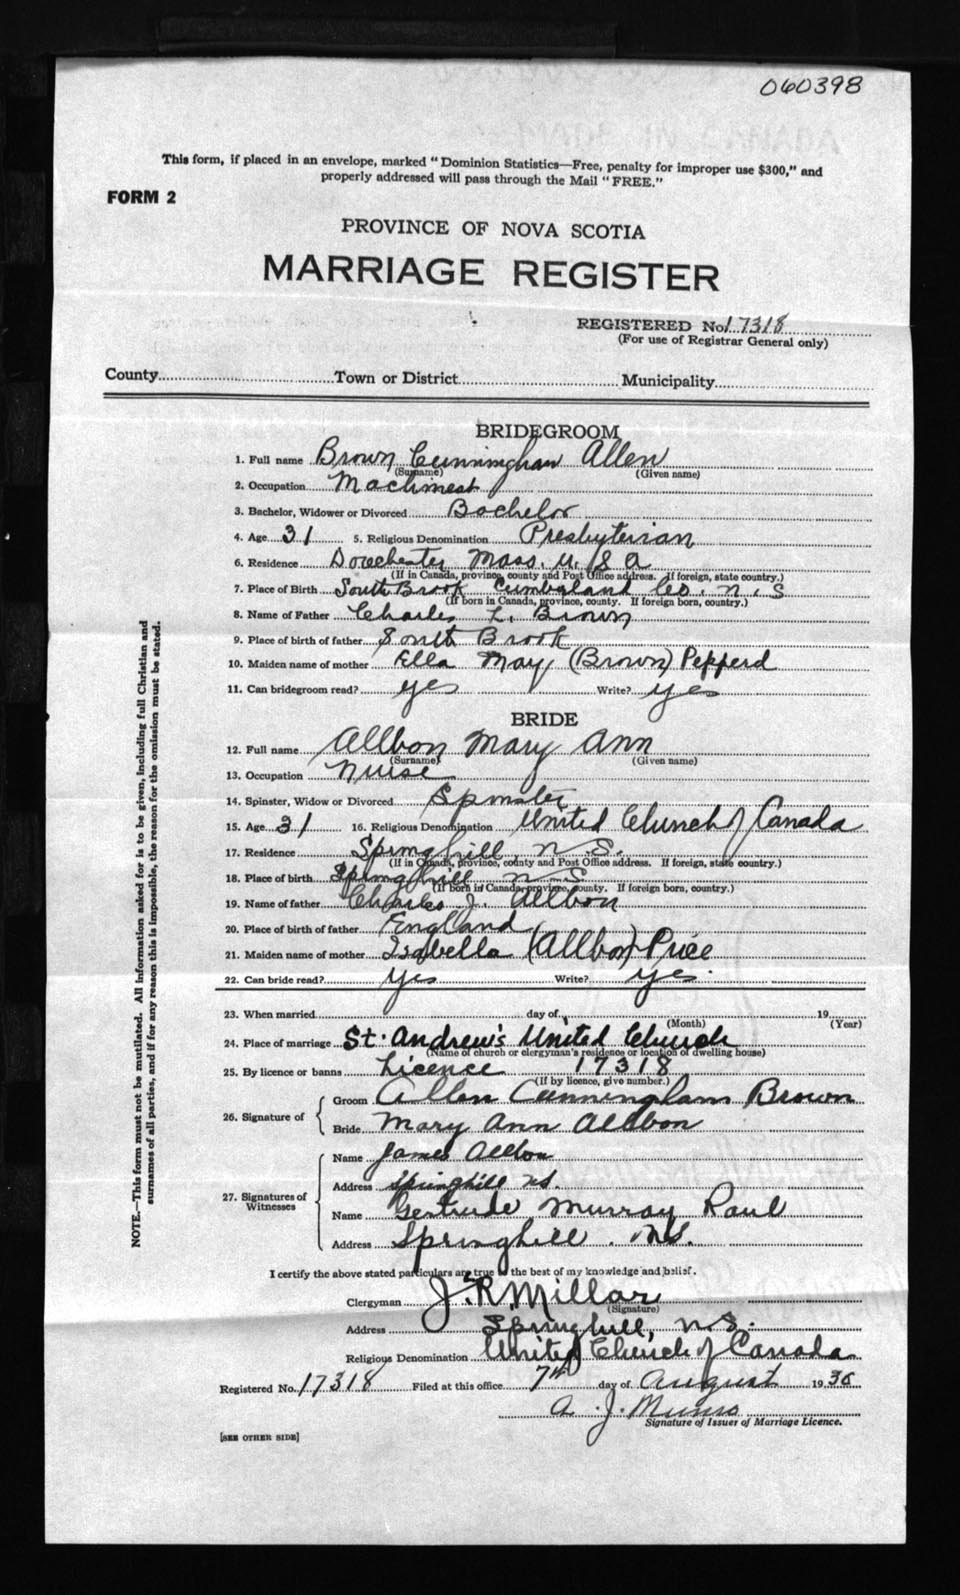 060398
This form, if placed in an envelope, marked "Dominion Statistics—Free, penalty for improper use $300," and
properly addressed will pass through the Mail "FREE."
FORM 2
PROVINCE OF NOVA SCOTIA
MARRIAGE REGISTER
REGISTERED No. 17318
(For use of Registrar General only)
County Town or District Municipality
BRIDEGROOM
1. Full name Brown Cunningham Allen
(Surname) (Given name)
2. Occupation Machinest
3. Bachelor, Widower or Divorced Bachelor
4. Age 31 5. Religious Denomination Presbyterian
6. Residence Dorchester Mass. U. S A
(If in Canada, province, county and Post Office address. If foreign, state country.)
7. Place of Birth South Brook Cumberland Co. N. S
(If born in Canada, province, county. If foreign born, country.)
8. Name of Father Charles L. Brown
9. Place of birth of father South Brook
10. Maiden name of mother Ella May (Brown) Pepperd
11. Can bridegroom read? yes Write? yes
BRIDE
12. Full name Allbon Mary Ann
(Surname) (Given name)
13. Occupation Nurse
14. Spinster, Widow or Divorced Spinster
15. Age 31 16. Religious Denomination United Church of Canada
17. Residence Springhill, N.S.
(If in Canada, province, county and Post Office address. If foreign, state country.)
18. Place of birth Springhill N-S
(If born in Canada, province, county. If foreign born, country.)
19. Name of father Charles J. Allbon
20. Place of birth of father England
21. Maiden name of mother Isabella (Allbon) Price
22. Can bride read? yes Write? yes.
23. When married day of 19
(Month) (Year)
24. Place of marriage St. Andrew's United Church
(Name of church or clergyman's residence or location of dwelling house)
25. By licence or banns Licence 17318
(If by licence, give number.)
26. Signature of
Groom Allen Cunningham Brown
Bride Mary Ann Allbon
27. Signatures of Witnesses
Name James Allbon
Address Springhill NS.
Name Gertrude Murray Raul
Address Springhill. NS.
I certify the above stated particulars are true to the best of my knowledge and belief.
Clergyman J. R. Millar
(Signature)
Address Springhill, N.S.
Religious Denomination United Church of Canada
Registered No. 17318 Filed at this office 7th day of August 1936
A. J. Munro
Signature of Issuer of Marriage Licence.
[SEE OTHER SIDE]
NOTE.—This form must not be mutilated. All information asked for is to be given, including full Christian and
surnames of all parties, and if for any reason this is impossible, the reason for the omission must be stated.